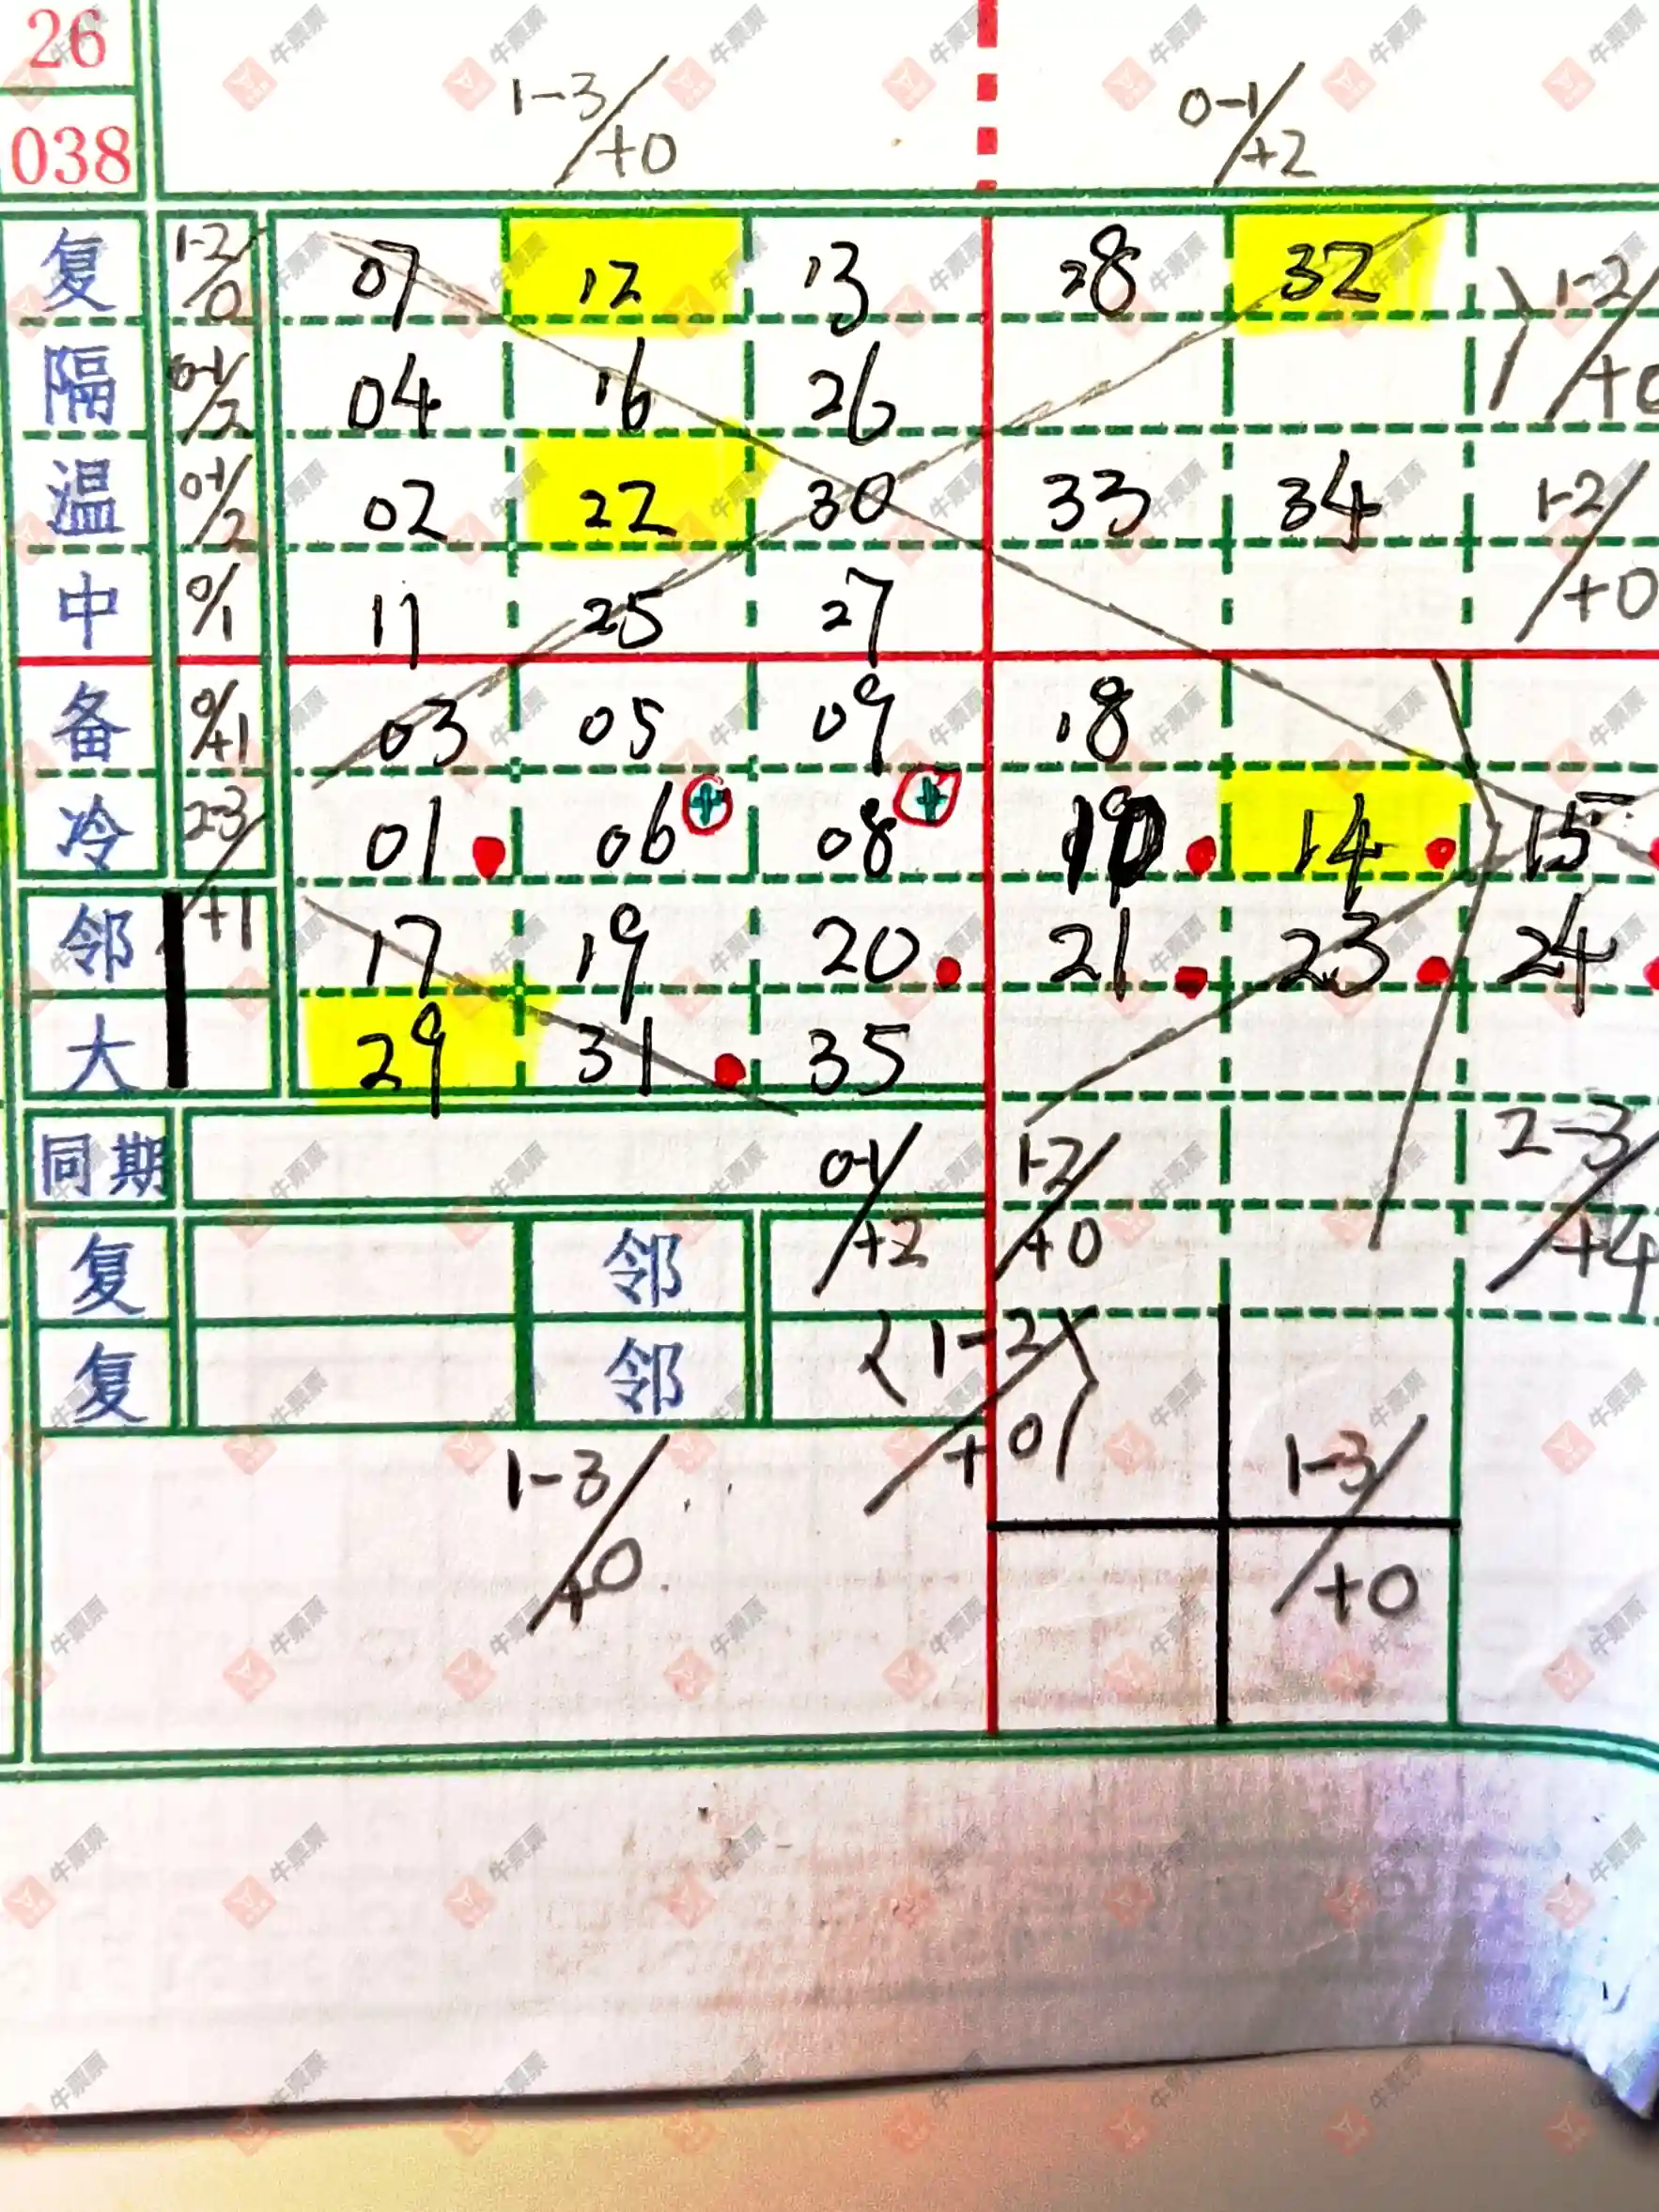 26
1-3/+0 0-1/+2
038
复 1-2/0 07 12 13 28 32 1-2/+0
隔 0-1/2 04 16 26
温 0-1/2 02 22 30 33 34 1-2/+0
中 0/1 11 25 27
备 0/+1 03 05 09 18
冷 2-3/+1 01 06 08 10 14 15
邻 17 19 20 21 23 24
大 29 31 35
同期 0-1/+2 1-2/+0 2-3/+4
复 邻
复 邻 1-2/+0
1-3/+0 1-3/+0
牛票票